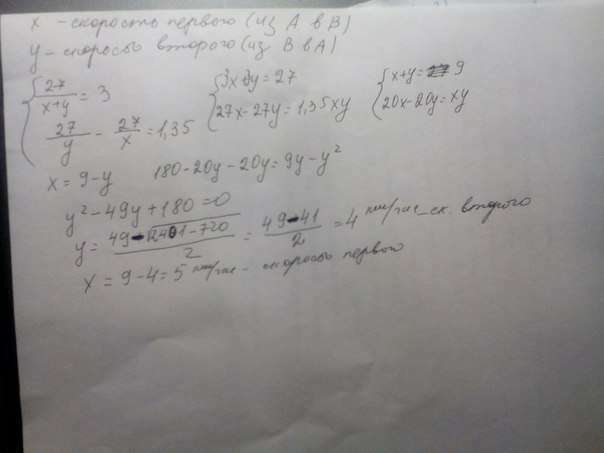 x - скорость первого (из A в B)
y - скорость второго (из B в A)
{ 27/(x+y) = 3
27/y - 27/x = 1,35
{ 3x+3y = 27
27x-27y = 1,35xy
{ x+y = 9
20x-20y = xy
x = 9-y 180-20y-20y = 9y-y²
y²-49y+180 = 0
y = (49-√2401-720)/2 = (49-41)/2 = 4 км/час - ск. второго
x = 9-4 = 5 км/час - скорость первого